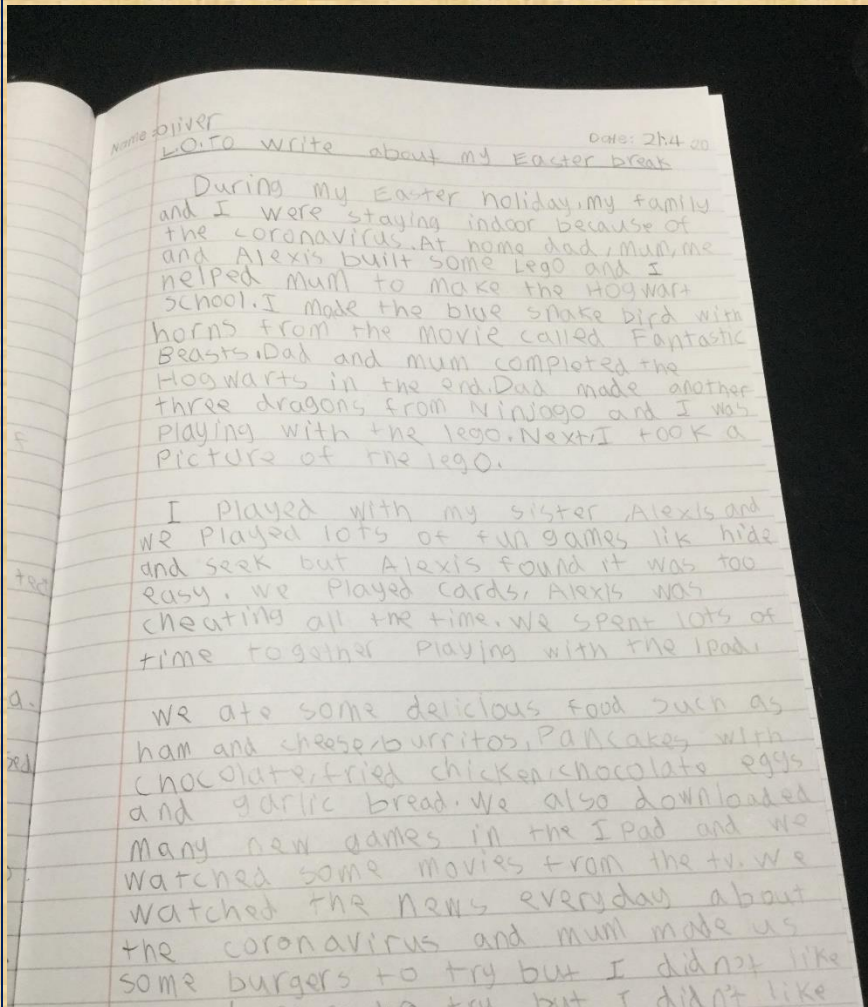 Name: Oliver
Date: 21.4 20
L.O. To write about my Easter break
During my Easter holiday, my family
and I were staying indoor because of
the coronavirus. At home dad, mum, me
and Alexis built some Lego and I
helped mum to make the Hogwart
school. I made the blue snake bird with
horns from the movie called Fantastic
Beasts. Dad and mum completed the
Hogwarts in the end. Dad made another
three dragons from Ninjago and I was
playing with the lego. Next, I took a
picture of the lego.
I played with my sister, Alexis and
we played lots of fun games lik hide
and seek but Alexis found it was too
easy. We played cards, Alexis was
cheating all the time. We spent lots of
time together playing with the Ipad.
We ate some delicious food such as
ham and cheese, burritos, pancakes with
chocolate, fried chicken, chocolate eggs
and garlic bread. We also downloaded
many new games in the I Pad and we
watched some movies from the tv. We
watched the news everyday about
the coronavirus and mum made us
some burgers to try but I didn't like